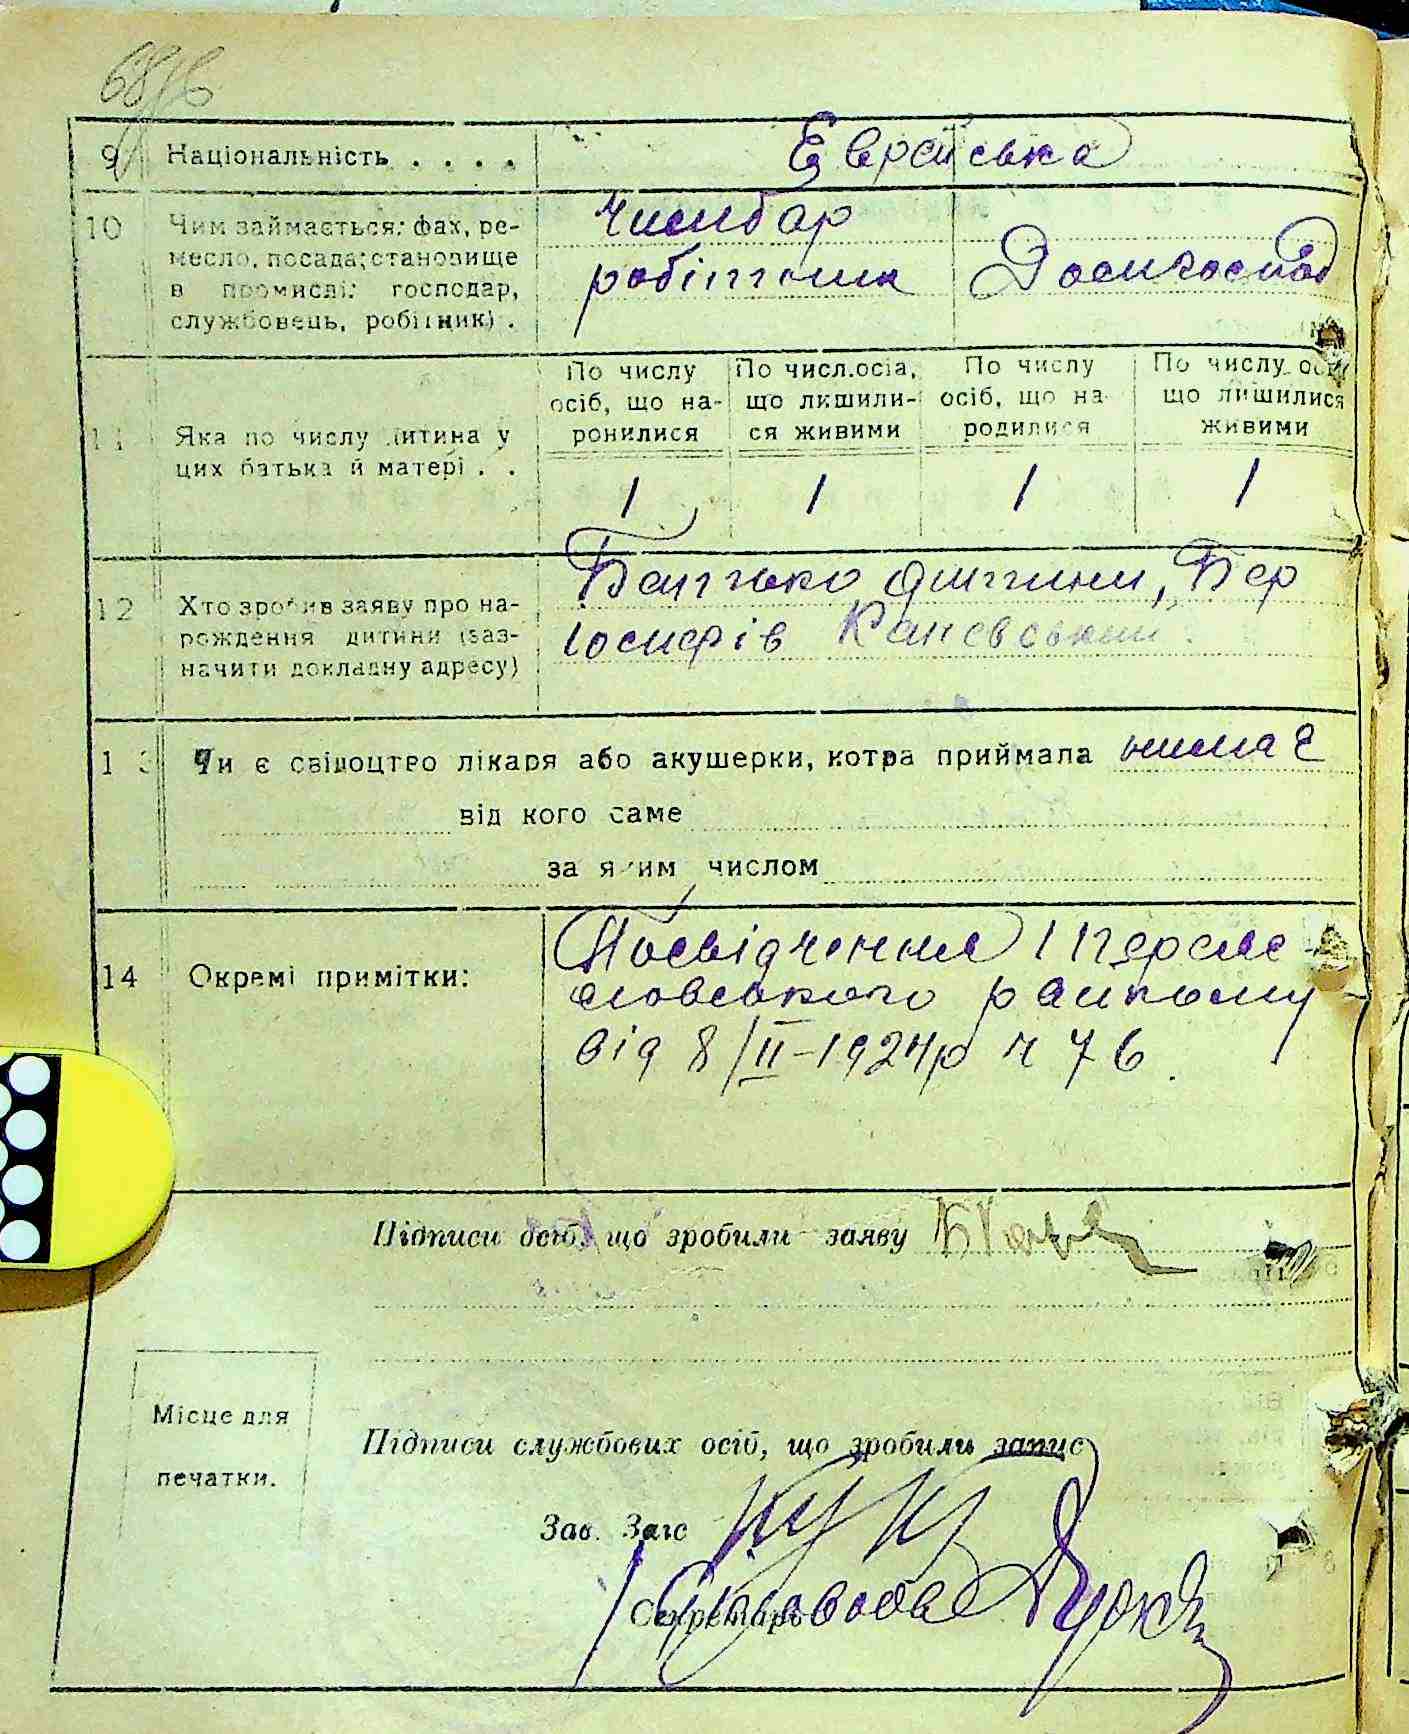 9 Національність . . . . Еврейська
10 Чим займається: фах, ре-
месло, посада; становище
в промислі: господар,
службовець, робітник) .
чимбар
робітник
Домгоспод
11 Яка по числу дитина у
цих батька й матері . .
По числу
осіб, що на-
ронилися
По числ.осіа,
що лишили-
ся живими
По числу
осіб, що на
родилися
По числу
що лишилися
живими
1 1 1 1
12 Хто зробив заяву про на-
рождення дитини (заз-
начити докладну адресу)
Батько дитини, Бер
Іосифів Каневський
13 Чи є свідоцтво лікаря або акушерки, котра приймала нима є
від кого саме
за яким числом
14 Окремі примітки:
Посвідчення
словського райкому
від 8/II-1924р ч 76
Підписи осіб, що зробили заяву
Місце для
печатки.
Підписи службових осіб, що зробили запис
Зав. Загс
Секретарь